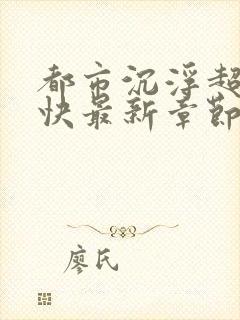 都市沉浮超
快最新章節
廖氏